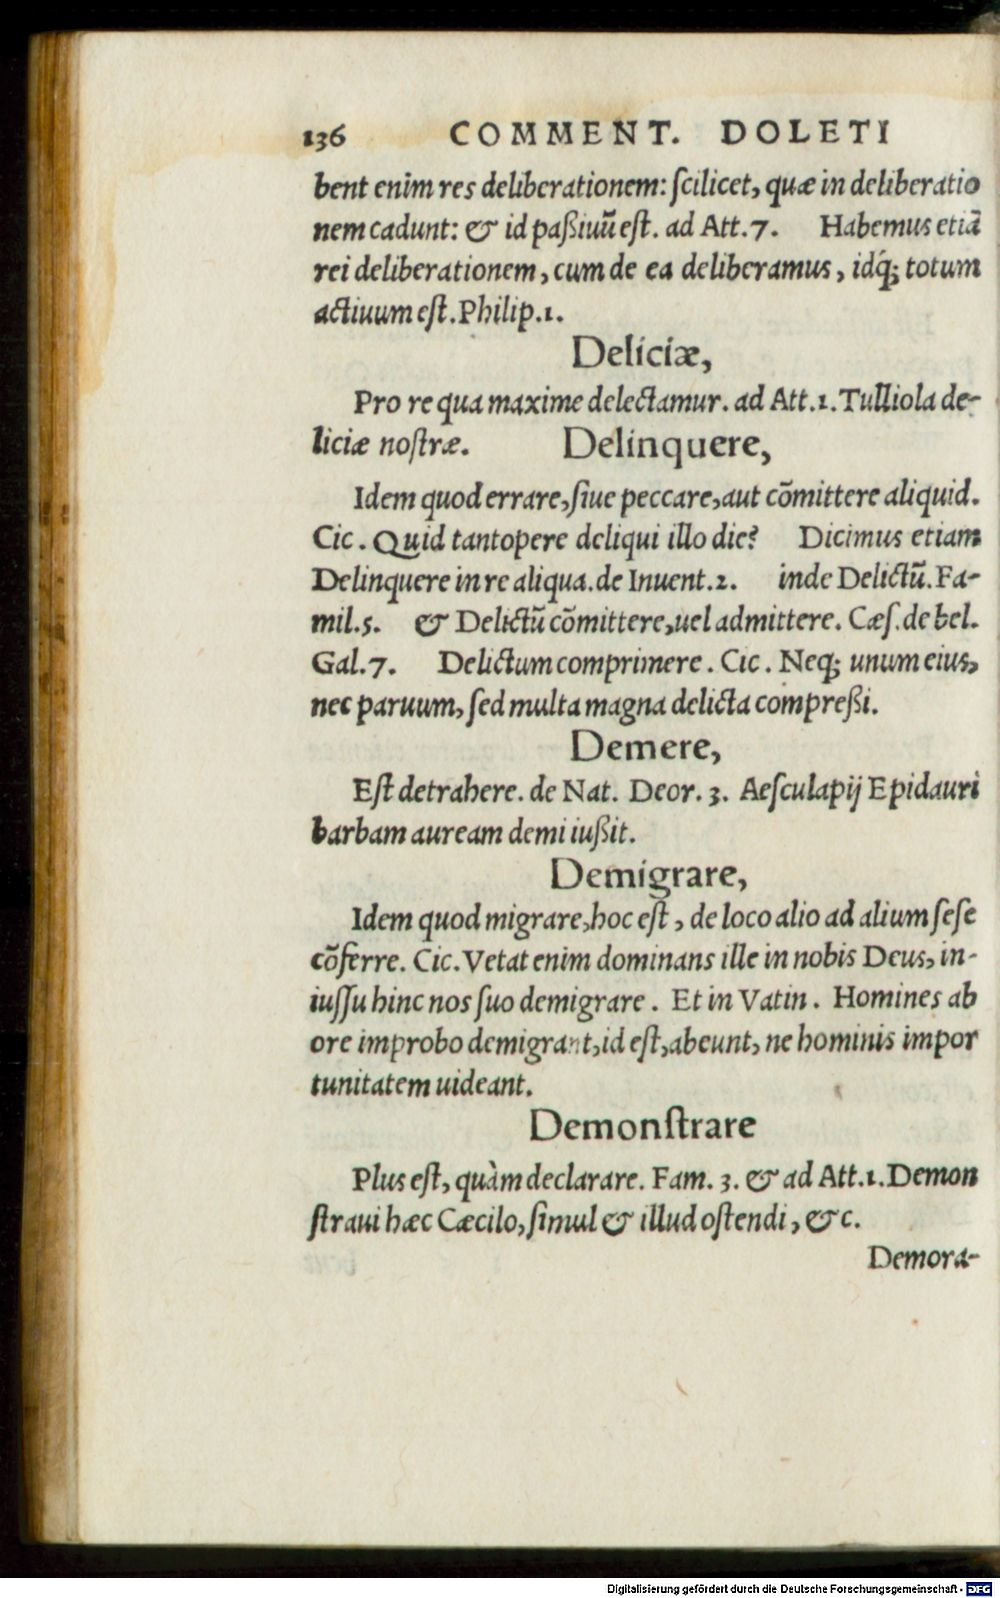 136 COMMENT. DOLETI
bent enim res deliberationem: ſcilicet, quæ in deliberatio
nem cadunt: & id paßiuũ eſt. ad Att. 7. Habemus etiã
rei deliberationem, cum de ea deliberamus, idq́; totum
actiuum eſt. Philip. 1.
Deliciæ,
Pro re qua maxime delectamur. ad Att. 1. Tulliola de-
liciæ noſtræ. Delinquere,
Idem quod errare, ſiue peccare, aut cõmittere aliquid.
Cic. Quid tantopere deliqui illo die? Dicimus etiam
Delinquere in re aliqua. de Inuent. 2. inde Delictũ. Fa-
mil. 5. & Delictũ cõmittere, uel admittere. Cæſ. de bel.
Gal. 7. Delictum comprimere. Cic. Neq; unum eius,
nec paruum, ſed multa magna delicta compreßi.
Demere,
Eſt detrahere. de Nat. Deor. 3. Aeſculapij Epidauri
barbam auream demi iußit.
Demigrare,
Idem quod migrare, hoc eſt, de loco alio ad alium ſeſe
cõferre. Cic. Vetat enim dominans ille in nobis Deus, in-
iuſſu hinc nos ſuo demigrare. Et in Vatin. Homines ab
ore improbo demigrant, id eſt, abeunt, ne hominis impor
tunitatem uideant.
Demonſtrare
Plus eſt, quàm declarare. Fam. 3. & ad Att. 1. Demon
ſtraui hæc Cæcilo, ſimul & illud oſtendi, &c.
Demora-
Digitalisierung gefördert durch die Deutsche Forschungsgemeinschaft - DFG